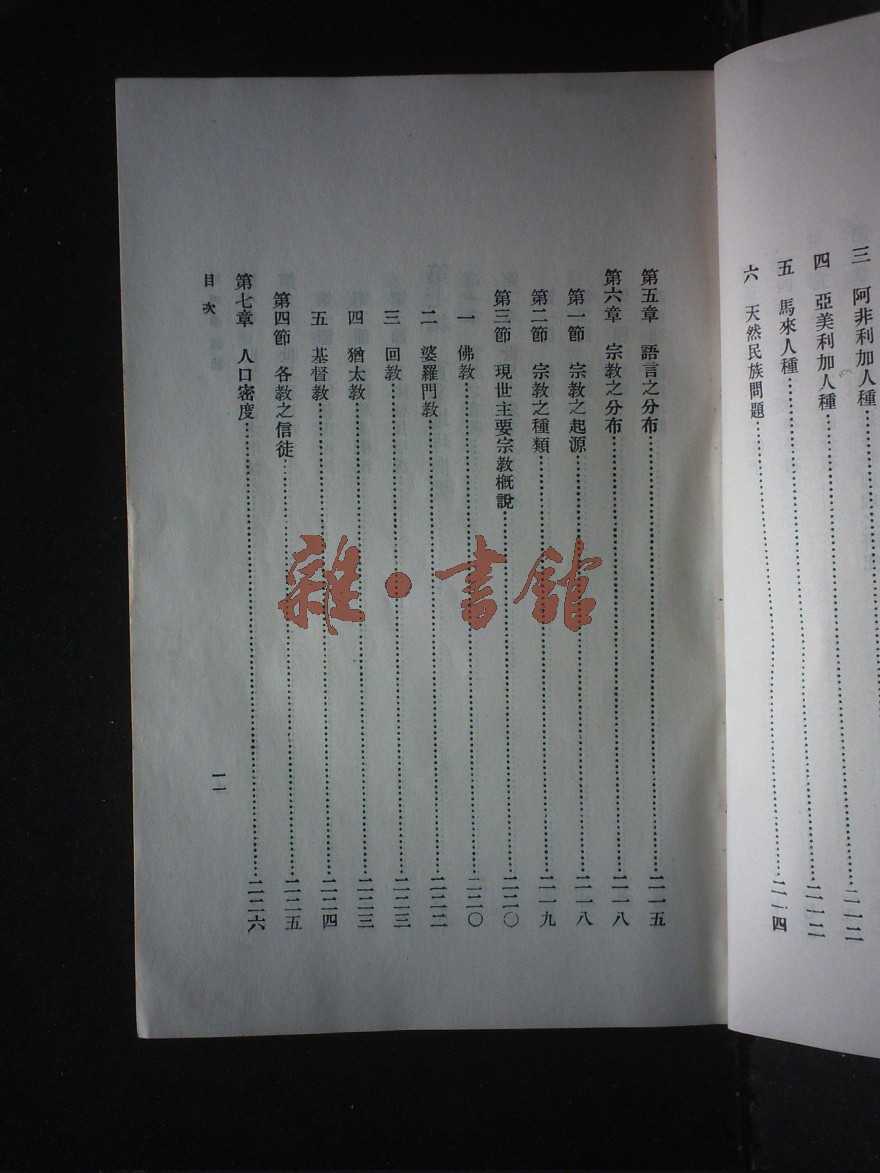 三　阿非利加人種……二一二
四　亞美利加人種……二一二
五　馬來人種……
六　天然民族問題……二一四
第五章　語言之分布……二一五
第六章　宗教之分布……二一八
第一節　宗教之起源……二一八
第二節　宗教之種類……二一九
第三節　現世主要宗教概說……二二〇
一　佛教……二二〇
二　婆羅門教……二二二
三　回教……二二三
四　猶太教……二二三
五　基督教……二二四
第四節　各教之信徒……二二五
第七章　人口密度……二二六
目次
一一
雜·書館